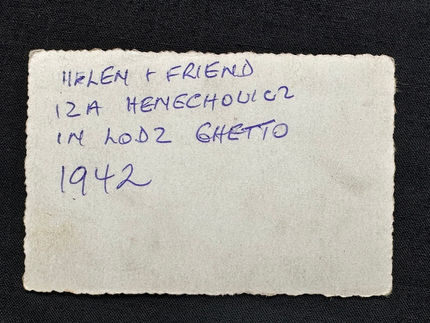 HELEN + FRIEND
IZA HENECHOWICZ
IN LODZ GHETTO
1942